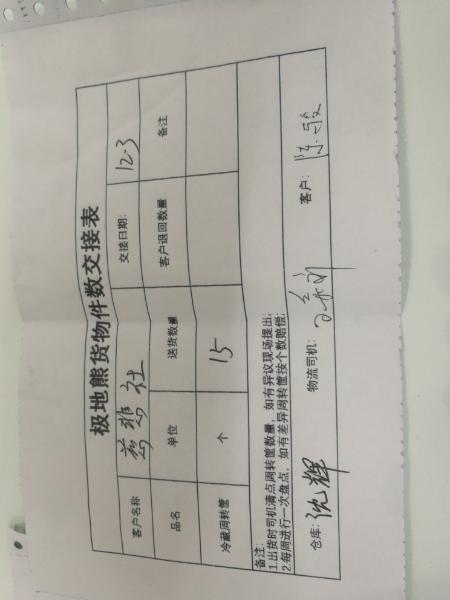 极地熊货物件数交接表
客户名称 慈悲社 交接日期: 12-3
品名 单位 送货数量 客户退回数量 备注
冷藏周转筐 个 15
备注:
1.出货时司机清点周转筐数量,如有异议现场提出;
2.每周进行一次盘点,如有差异周转筐按个数赔偿;
仓库: 沈辉 物流司机: 客户: 陈